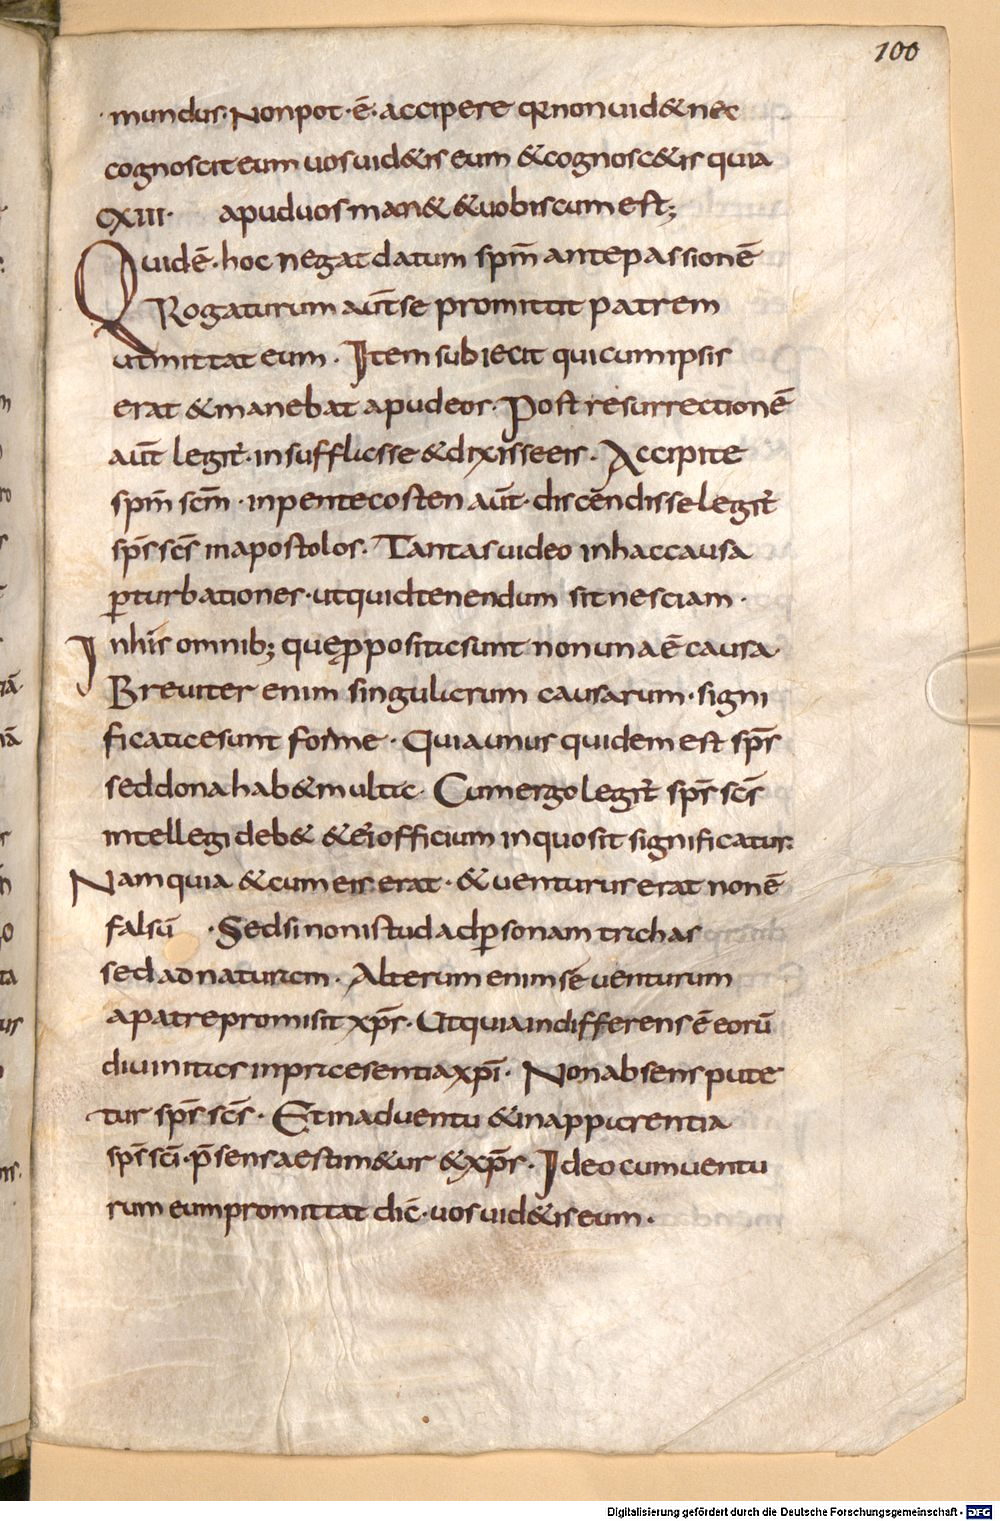 100
mundus. Non pot. ē. accipere qr non uid& nec
cognoscit eum uos uid&is eum & cognosc&is quia
CXIII. apud uos man& & uobiscum est;
Quidē. hoc negat datum spm̄ ante passionē
Rogaturum aūt se promittit patrem
ut mittat eum. Item subiecit qui cum ipsis
erat & manebat apud eos. Post resurrectionē
aūt legit̄. insufflasse & dixisse eis. Accipite
spm̄ scm̄. in pentecosten aūt. discendisse legit̄
sps̄ scs̄ in apostolos. Tantas uideo in hac causa
p̱turbationes. ut quid tenendum sit nesciam.
In his omnib; quę ppositae sunt non una ē causa.
Breuiter enim singularum causarum. signi
ficatae sunt formę. Quia unus quidem est sps̄
sed dona hab& multa. Cum ergo legit̄ sps̄ scs̄
intellegi deb& & ei officium in quo sit significatus.
Nam quia & cum eis erat. & uenturus erat non ē
falsū. Sed si non istud ad p̱sonam trahas
sed ad naturam. Alterum enim se uenturum
a patre promisit xp̄s. Ut quia indifferens ē eorū
diuinitas in praesentia xp̄i. Non absens pute
tur sps̄ scs̄. Et in aduentu & in apparentia
sps̄ sci. p̄sens aestim&ur & xp̄s. Ideo cum uentu
rum eum promittat dic̄. uos uid&is eum.
Digitalisierung gefördert durch die Deutsche Forschungsgemeinschaft - DFG